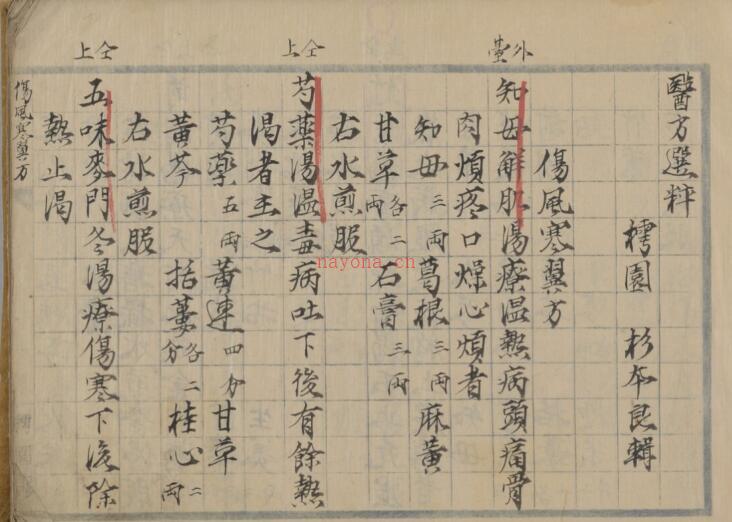 醫方選粹
樗園 杉本良輯
傷風寒翼方
外臺
知母解肌湯療温熱病頭痛骨
肉煩疼口燥心煩者
知母三兩葛根三兩麻黃
甘草各二兩石膏三兩
右水煎服
仝上
芍藥湯温毒病吐下後有餘熱
渴者主之
芍藥五兩黃連四分甘草
黃芩 括蔞各二分桂心二兩
右水煎服
仝上
五味麥門冬湯療傷寒下後除
熱止渴
傷風寒翼方
nayona.cn